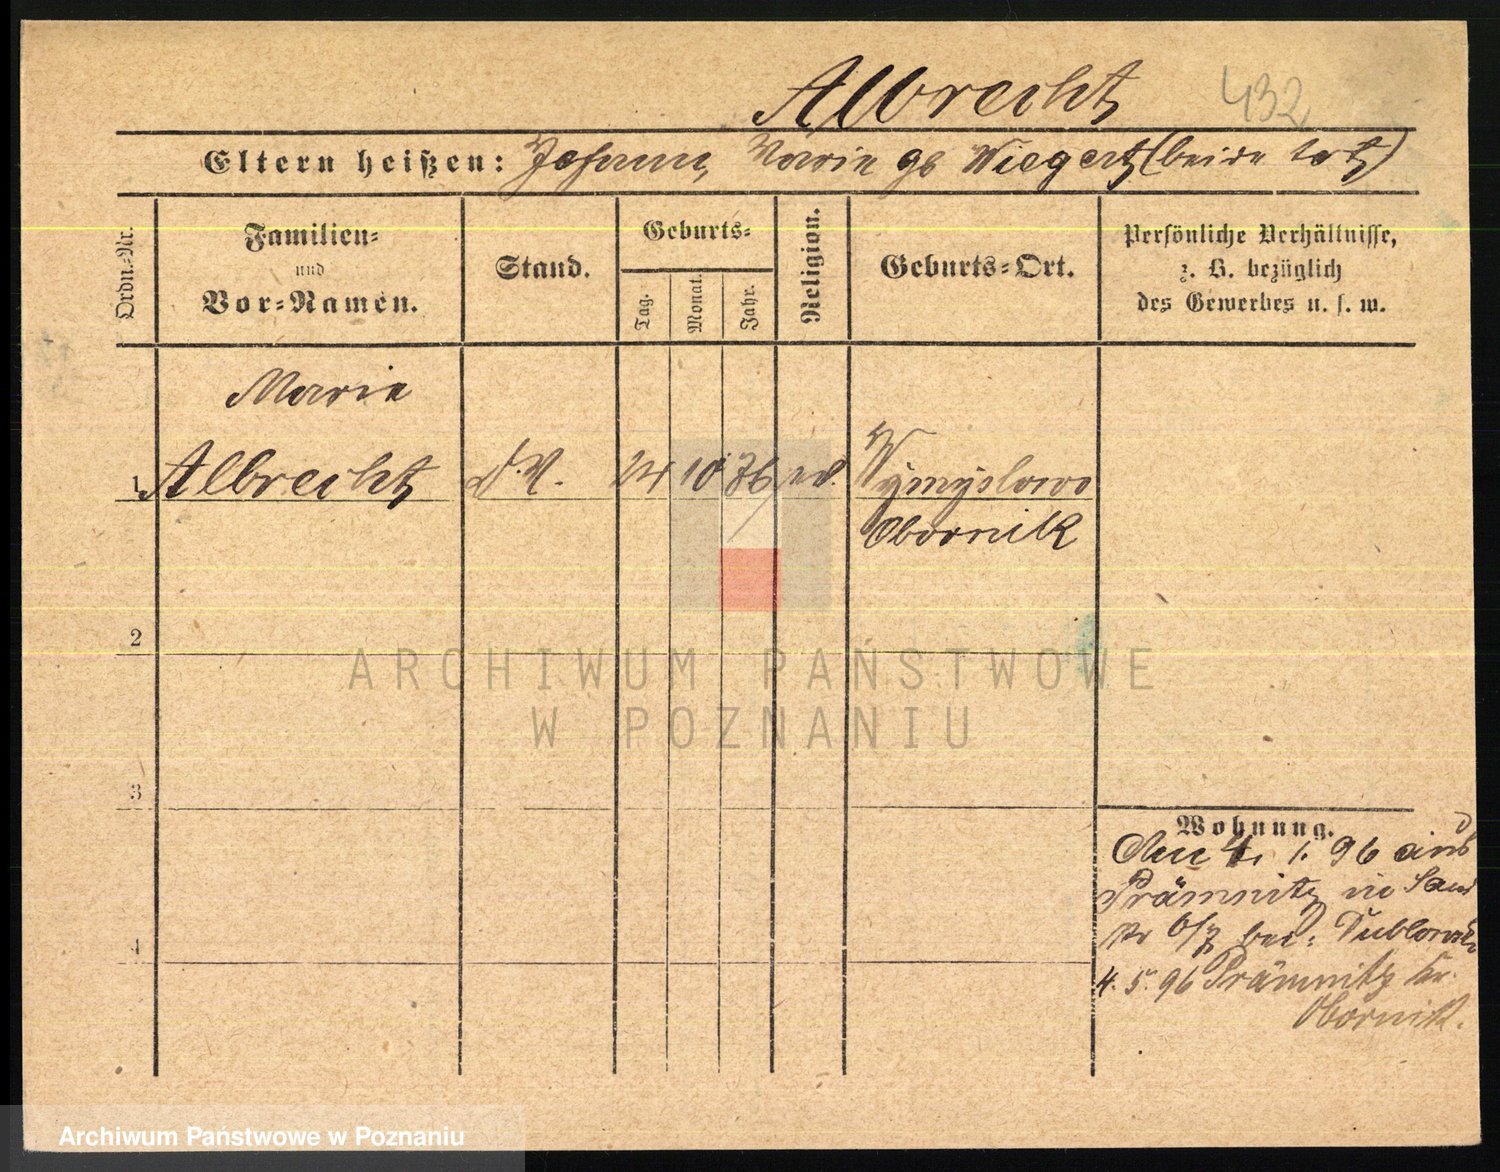 Albrecht 432
Eltern heißen: Johann, Marie gb Wiegert (beide tot)
Ordn.-Nr.
Familien-
und
Vor-Namen.
Stand.
Geburts-
Tag.
Monat.
Jahr.
Religion.
Geburts-Ort.
Persönliche Verhältnisse,
z. B. bezüglich
des Gewerbes u. s. w.
Marie
1 Albrecht 24 10 76 Wymyslowo
Obornik
2
3
4
Wohnung.
Am 4. 1. 96 aus
Prämnitz in
6/7 bei:
4. 5. 96 Prämnitz Kr.
Obornik.
ARCHIWUM PAŃSTWOWE
W POZNANIU
Archiwum Państwowe w Poznaniu